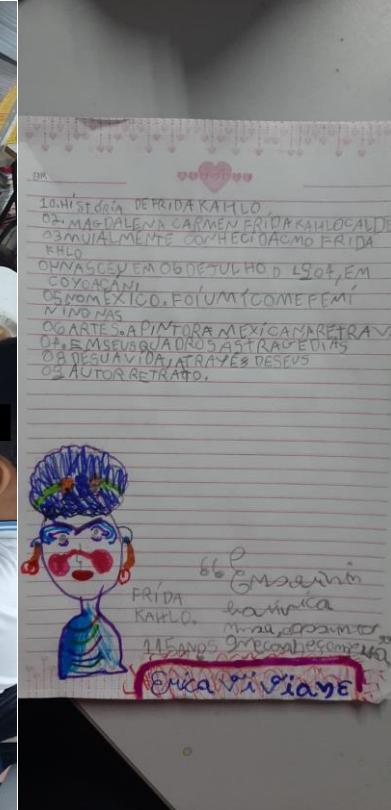 10.HÍSTÓRIA DE FRIDA KAHLO,
02. MAGDALENA CARMEN FRIDA KAHLO CALDE
03 MUIALMENTE CONHECIDA CMO FRIDA
KHLO
04 NASCEU EM 06 DE JULHO D 1907, EM
COYOACÁN.
05 NO MÉXICO. FOI UM ÍCOME FEMÍ
NINO NAS
06 ARTES. A PINTORA MEXICANA RETRAV
07. EM SEUS QUADROS AS TRAGÉDIAS
08 DE SUA VIDA, ATRAYÉS DE SEUS
09 AUTOR RETRATO.
FRÍDA
KAHLO.
115 ANOS
66
Erica Viviane